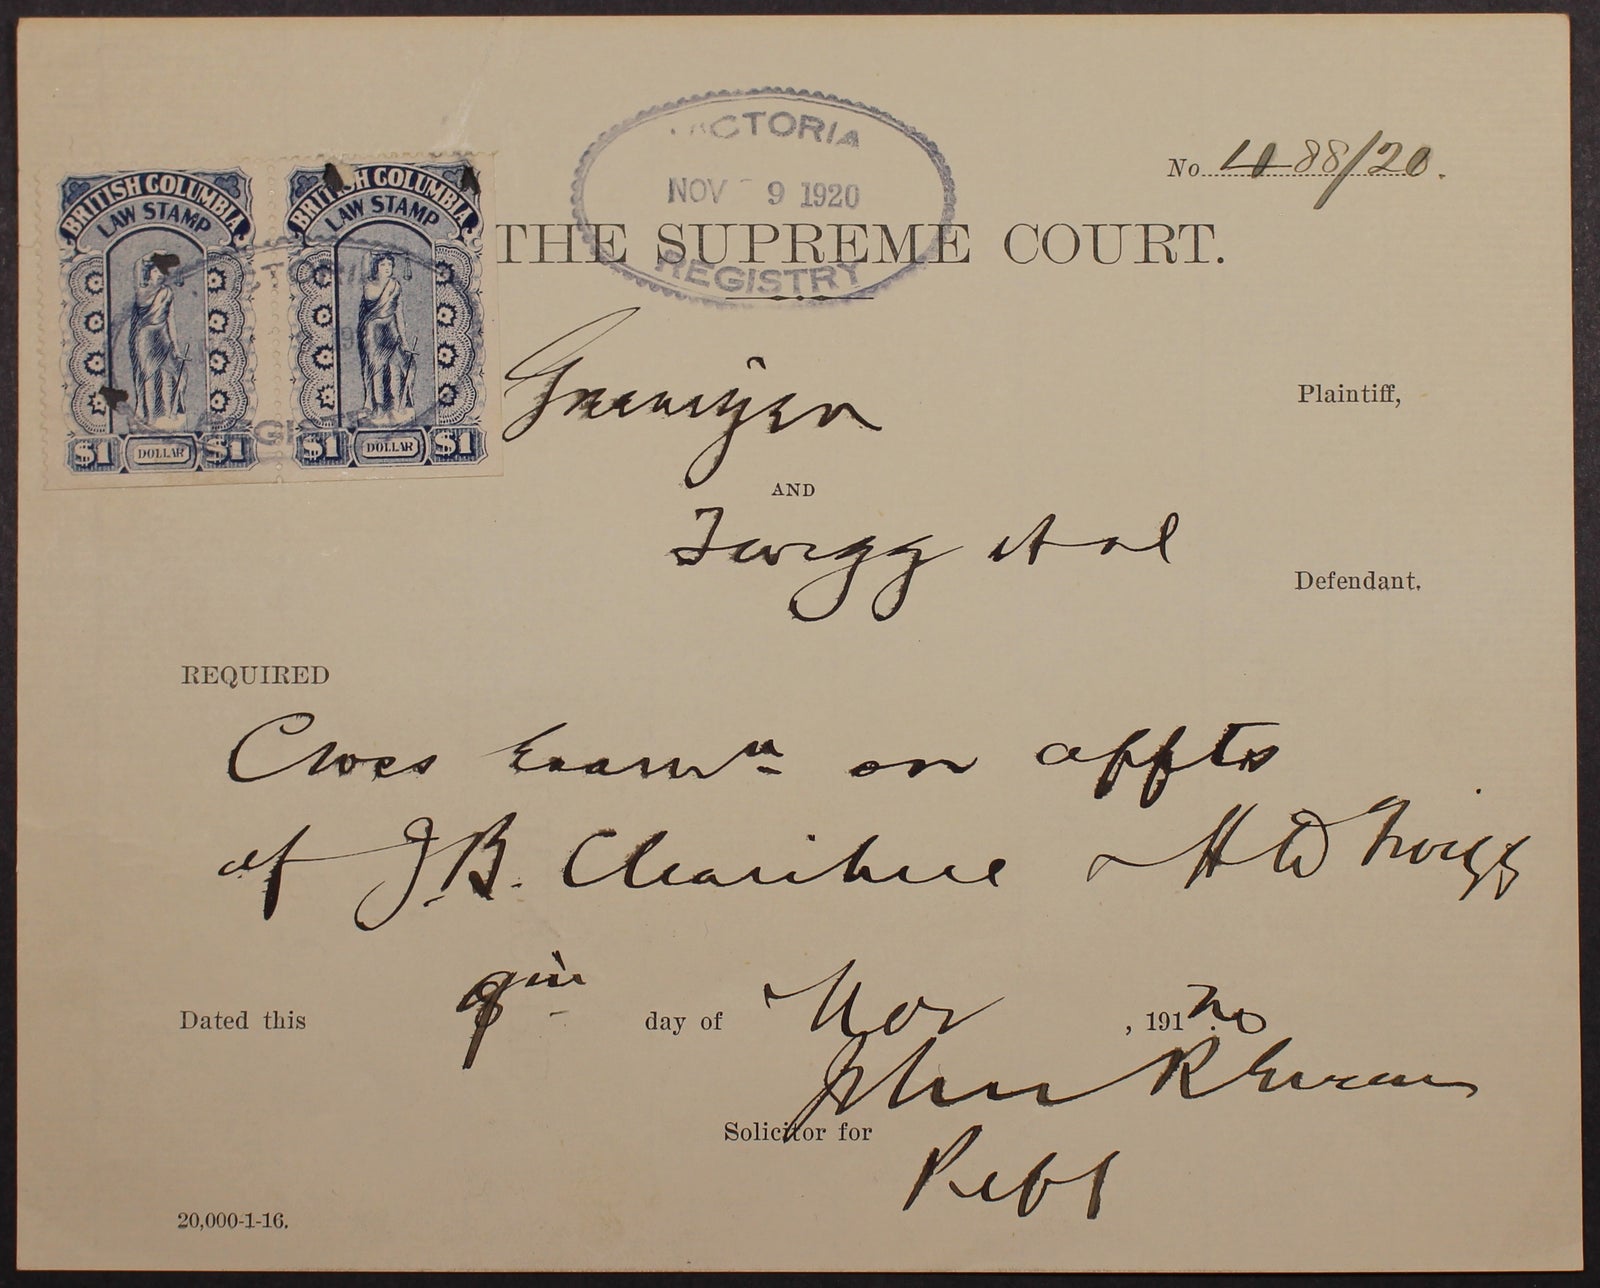 BRITISH COLUMBIA
LAW STAMP
$1 DOLLAR $1
BRITISH COLUMBIA
LAW STAMP
$1 DOLLAR $1
VICTORIA
NOV 9 1920
REGISTRY
No 88/20.
THE SUPREME COURT.
Plaintiff,
AND
Twigg et al
Defendant.
REQUIRED
Cross Examn on affts
of J.B. Clearihue & H D Twigg
Dated this 9th day of Nov , 191 20
John R
Solicitor for
20,000-1-16.